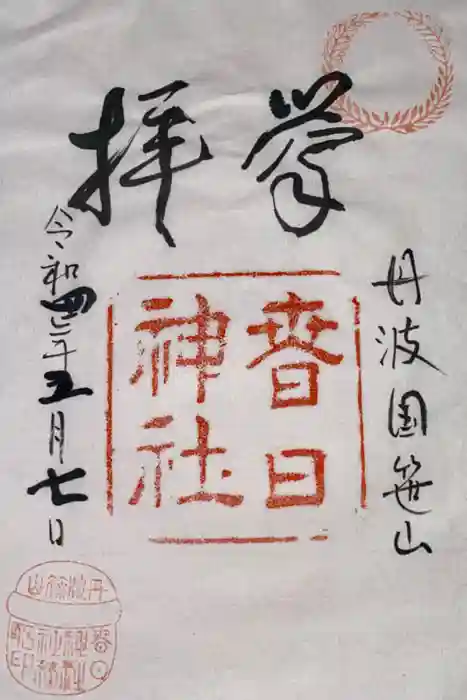 丹波国笹山
奉拝
春日
神社
令和四年五月七日
丹波篠山
春日
神社
社務
所印